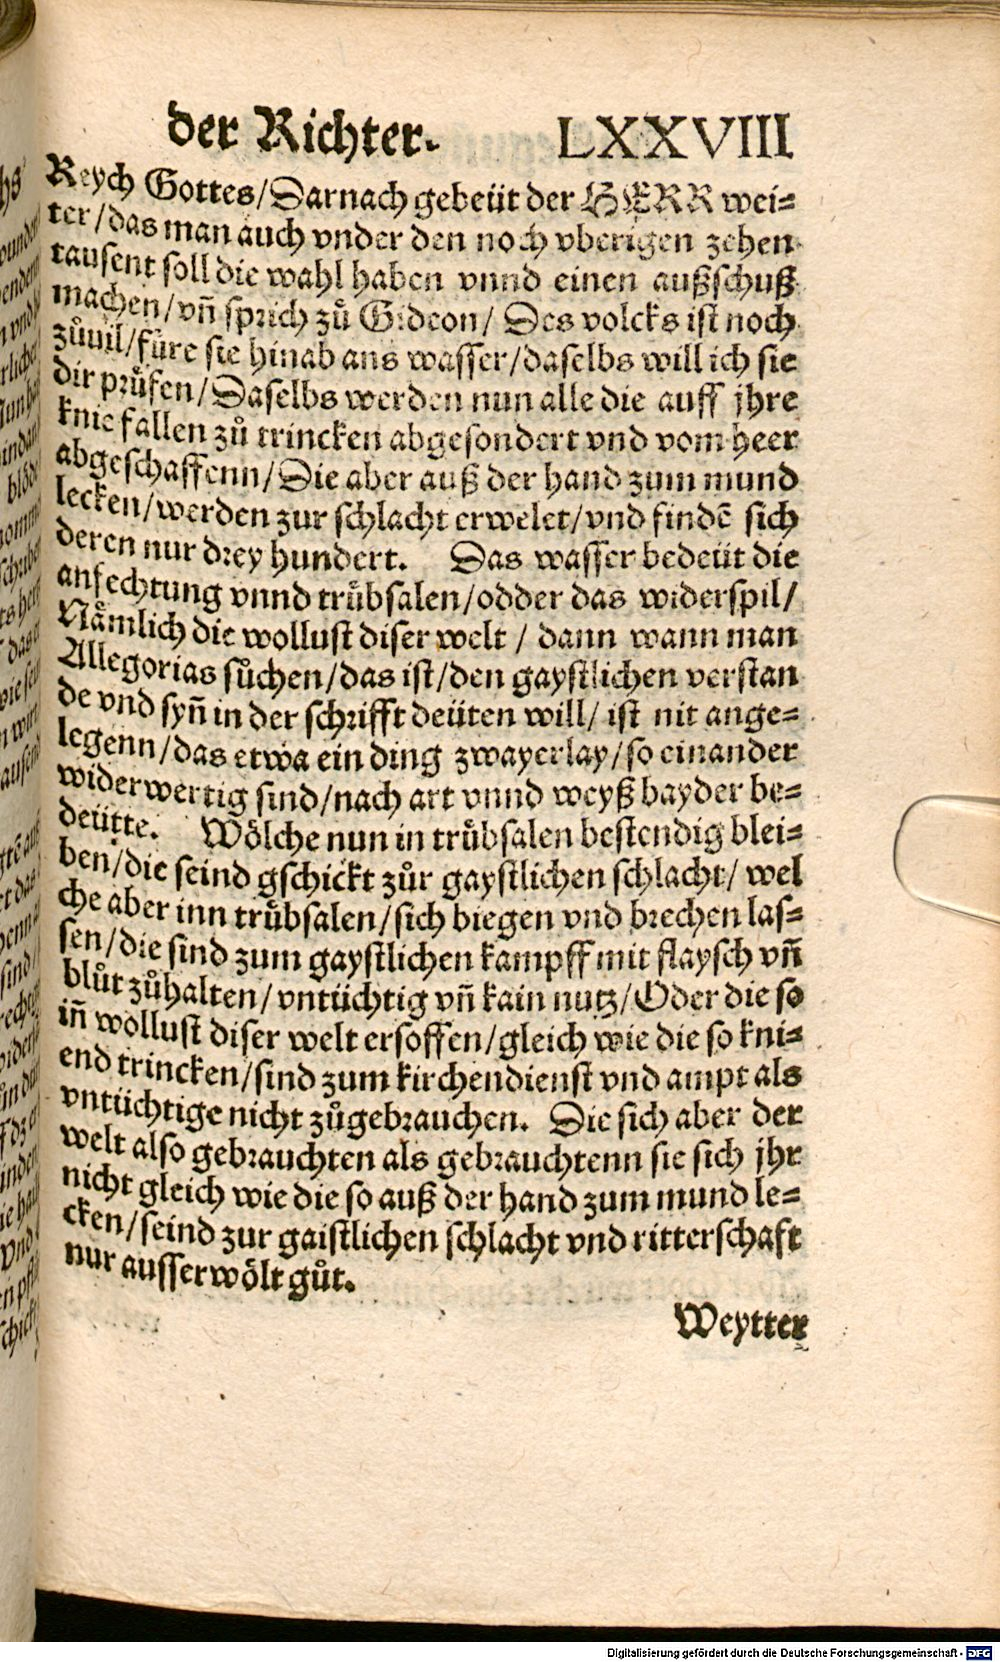 der Richter. LXXVIII
Reych Gottes/Darnach gebeüt der HERR wei=
ter/das man auch vnder den noch vberigen zehen
tausent soll die wahl haben vnnd einen außschuß
machen/vñ sprich zů Gideon/ Des volcks ist noch
zůuil/füre sie hinab ans wasser/daselbs will ich sie
dir prüfen/Daselbs werden nun alle die auff jhre
knie fallen zů trincken abgesondert vnd vom heer
abgeschaffenn/Die aber auß der hand zum mund
lecken/werden zur schlacht erwelet/vnd findē sich
deren nur drey hundert. Das wasser bedeüt die
anfechtung vnnd trůbsalen/odder das widerspil/
Nämlich die wollust diser welt / dann wann man
Allegorias sůchen/das ist/den gaystlichen verstan
de vnd syñ in der schrifft deüten will/ ist nit ange=
legenn/das etwa ein ding zwayerlay/so einander
widerwertig sind/nach art vnnd weyß bayder be=
deütte. Wölche nun in trůbsalen bestendig blei=
ben/die seind gschickt zůr gaystlichen schlacht/ wel
che aber inn trůbsalen/sich biegen vnd brechen las=
sen/die sind zum gaystlichen kampff mit flaysch vñ
blůt zůhalten/vntüchtig vñ kain nutz/Oder die so
iñ wollust diser welt ersoffen/gleich wie die so kni=
end trincken/sind zum kirchendienst vnd ampt als
vntüchtige nicht zůgebrauchen. Die sich aber der
welt also gebrauchten als gebrauchtenn sie sich jhr
nicht gleich wie die so auß der hand zum mund le=
cken/seind zur gaistlichen schlacht vnd ritterschaft
nur ausserwölt gůt.
Weytter
Digitalisierung gefördert durch die Deutsche Forschungsgemeinschaft - DFG